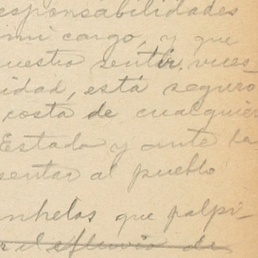 esponsabilidades
mi cargo, y que
uestro sentir, vues-
idad, está seguro
costa de cualquier
Estado y ante la
sentar al pueblo
nhelos que palpi-
r el efluvio de